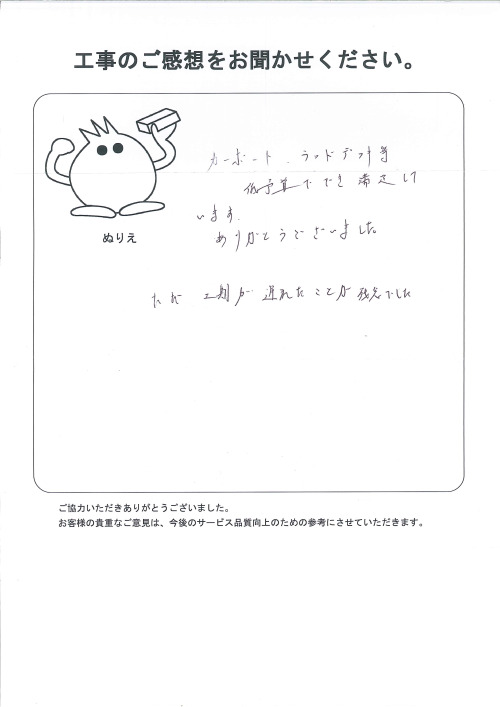 工事のご感想をお聞かせください。
カーポート、ウッドデッキ等
低予算ででき満足して
います。
ありがとうございました。
ただ 工期が遅れたことが残念でした
ぬりえ
ご協力いただきありがとうございました。
お客様の貴重なご意見は、今後のサービス品質向上のための参考にさせていただきます。